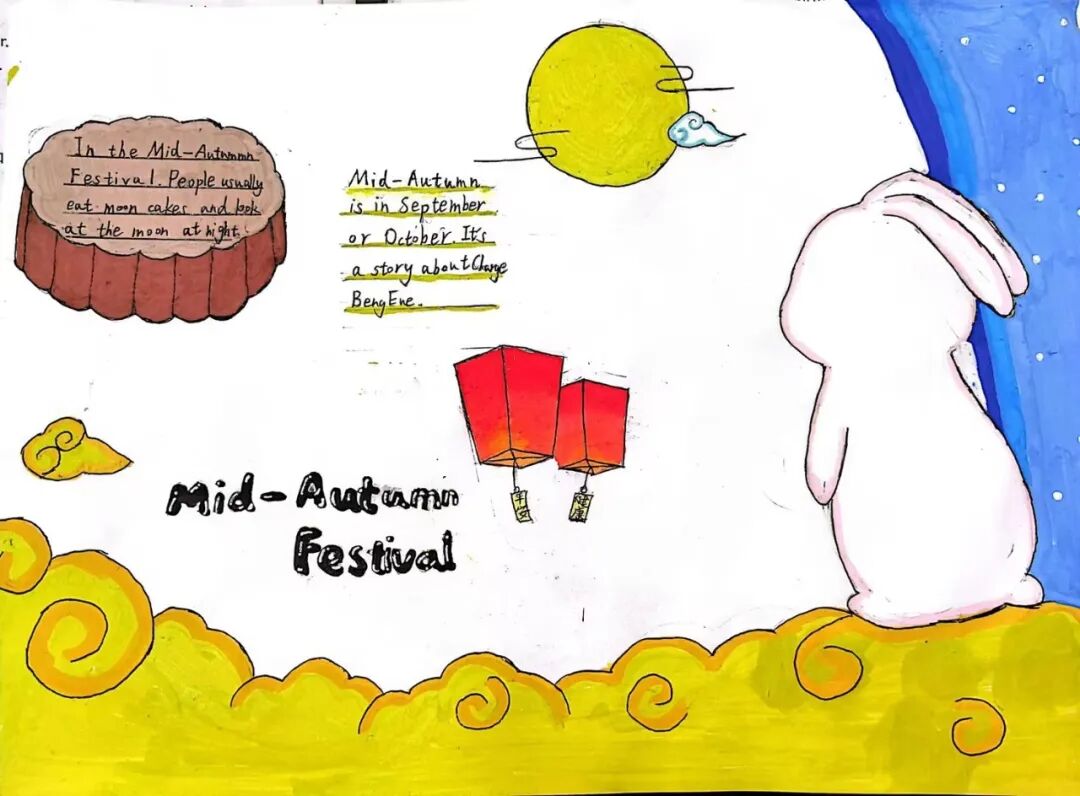 In the Mid-Autumn
Festival. People usually
eat moon cakes and look
at the moon at night.
Mid-Autumn
is in September
or October. It's
a story about Change
BengEne.
平安
健康
Mid-Autumn
Festival